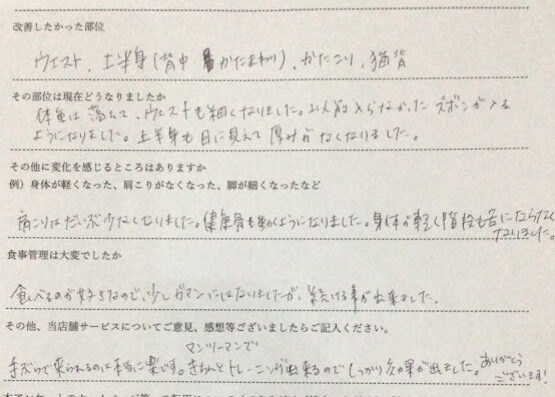 改善したかった部位
ウエスト、上半身(背中 かたまわり)、かたこり、猫背
その部位は現在どうなりましたか
体重は落ちて、ウエストも細くなりました。以前入らなかったズボンが入る
ようになりました。上半身も目に見えて厚みがなくなりました。
その他に変化を感じるところはありますか
例）身体が軽くなった、肩こりがなくなった、脚が細くなったなど
肩こりはだいぶ少なくなりました。健康骨も動くようになりました。身体が軽く階段も苦にならなく
なりました。
食事管理は大変でしたか
食べるのが好きなので、少しガマンではないましたが、続ける事が出来ました。
その他、当店舗サービスについてご意見、感想等ございましたらご記入ください。
マンツーマンで
手ぶらで来られるのは本当に楽です。きちんとトレーニング出来るのでしっかり効果が出ました。ありがとう
ございます!